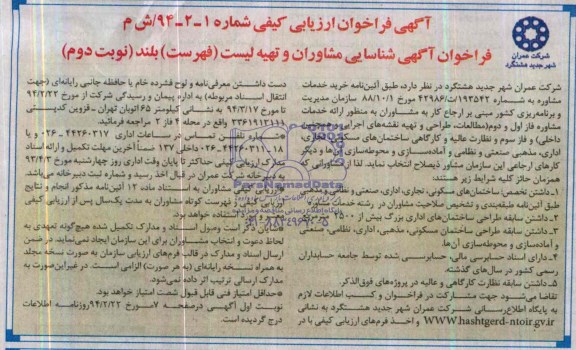 آگهی فراخوان ارزیابی کیفی شماره ۱-۲-۹۴/ش م
فراخوان آگهی شناسایی مشاوران و تهیه لیست (فهرست) بلند (نوبت دوم)
شرکت عمران
شهر جدید هشتگرد
شرکت عمران شهر جدید هشتگرد در نظر دارد، طبق آئین‌نامه خرید خدمات
مشاوره به شماره ۱۹۳۵۴۲/ت۴۲۹۸۶ مورخ ۸۸/۱۰/۱ سازمان مدیریت
و برنامه‌ریزی کشور مبنی بر ارجاع کار به مشاوران به منظور ارائه خدمات
مشاوره فاز اول و دوم(مطالعات، طراحی و تهیه نقشه‌های اجرایی و همچنین
داخلی) و فاز سوم و نظارت عالیه و کارگاهی ساختمان‌های
اداری، مذهبی صنعتی و نظامی و آماده‌سازی و محوطه‌سازی آن‌ها و دیگر
کارهای ارجاعی این سازمان مشاور ذیصلاح انتخاب نماید. لذا از مشاورانی که
همزمان حائز کلیه شرایط زیر هستند:
۱ـ داشتن تخصص ساختمان‌های مسکونی، تجاری، اداری، صنعتی و نظامی و مذهبی
طبق آئین‌نامه طبقه‌بندی و تشخیص صلاحیت مشاوران در رشته خدمات مشاوره
۲ـ داشتن سابقه طراحی ساختمان‌های اداری بزرگ بیش از ۲۵۰۰ مترمربع
۳ـ داشتن سابقه کارهای طراحی ساختمان مسکونی، مذهبی، اداری، نظامی و صنعتی
و آماده‌سازی و محوطه‌سازی آن‌ها.
۴ـ دارای اسناد حسابرسی مالی، حسابرسی شده توسط جامعه حسابداران
رسمی کشور در سال‌های گذشته.
۵ـ داشتن سابقه نظارت کارگاهی و عالیه در پروژه‌های فوق‌الذکر.
تقاضا می‌شود جهت مشارکت در فراخوان و کسب اطلاعات لازم
به پایگاه اطلاع‌رسانی شرکت عمران شهر جدید هشتگرد به نشانی
WWW.hashtgerd-ntoir.gv.ir و اخذ فرم‌های ارزیابی کیفی با در
دست داشتن معرفی‌نامه و لوح فشرده خام یا حافظه جانبی رایانه‌ای (جهت
انتقال اسناد مربوطه) به اداره پیمان و رسیدگی شرکت از مورخ ۹۴/۲/۲۲
تا مورخ ۹۴/۳/۱۷ به نشانی کیلومتر ۲۵ اتوبان تهران ـ قزوین کدپستی
۳۳۶۱۹۱۳۱۱۱ واقع در محله ۴ فاز ۲ مراجعه فرمائید.
شماره تلفن تماس در ساعات اداری ۴۴۲۶۰۳۱۷-۰۲۶ و یا
۱۸-۴۴۲۶۰۳۱۱-۰۲۶ داخلی ۱۳۷ ضمناً آخرین مهلت تکمیل و ارائه اسناد
مدارک ارزیابی کیفی حداکثر تا پایان وقت اداری روز چهارشنبه مورخ ۹۴/۴/۳
به دبیرخانه شرکت عمران در قبال اخذ رسید و شماره ثبت دبیرخانه می‌باشد.
ارزیابی کیفی مشاوران به استناد ماده ۱۲ آئین‌نامه مذکور انجام و نتایج
ارزیابی کیفی در فهرست کوتاه مشاوران به مدت یک‌سال پس از ارزیابی کیفی
استفاده خواهد بود.
وصول اسناد و مدارک تکمیل شده هیچ‌گونه تعهدی به
لحاظ دعوت و انتخاب مشاوران برای این سازمان ایجاد نمی‌نماید. در ضمن
ارسال اسناد و مدارک در قالب فرم‌های ارزیابی سازمان به صورت نسخه مجلد
به همراه نسخه رایانه‌ای (به هر صورت) الزامی است. در غیر این‌صورت به
مدارک ارسالی ترتیب اثر داده نمی‌شود.
حداقل امتیاز فنی قابل قبول شصت امتیاز خواهد بود.
نوبت اول آگهی درصفحه ۷ مورخ ۹۴/۲/۲۲ روزنامه اطلاعات
درج گردیده است.
ParsNamadData